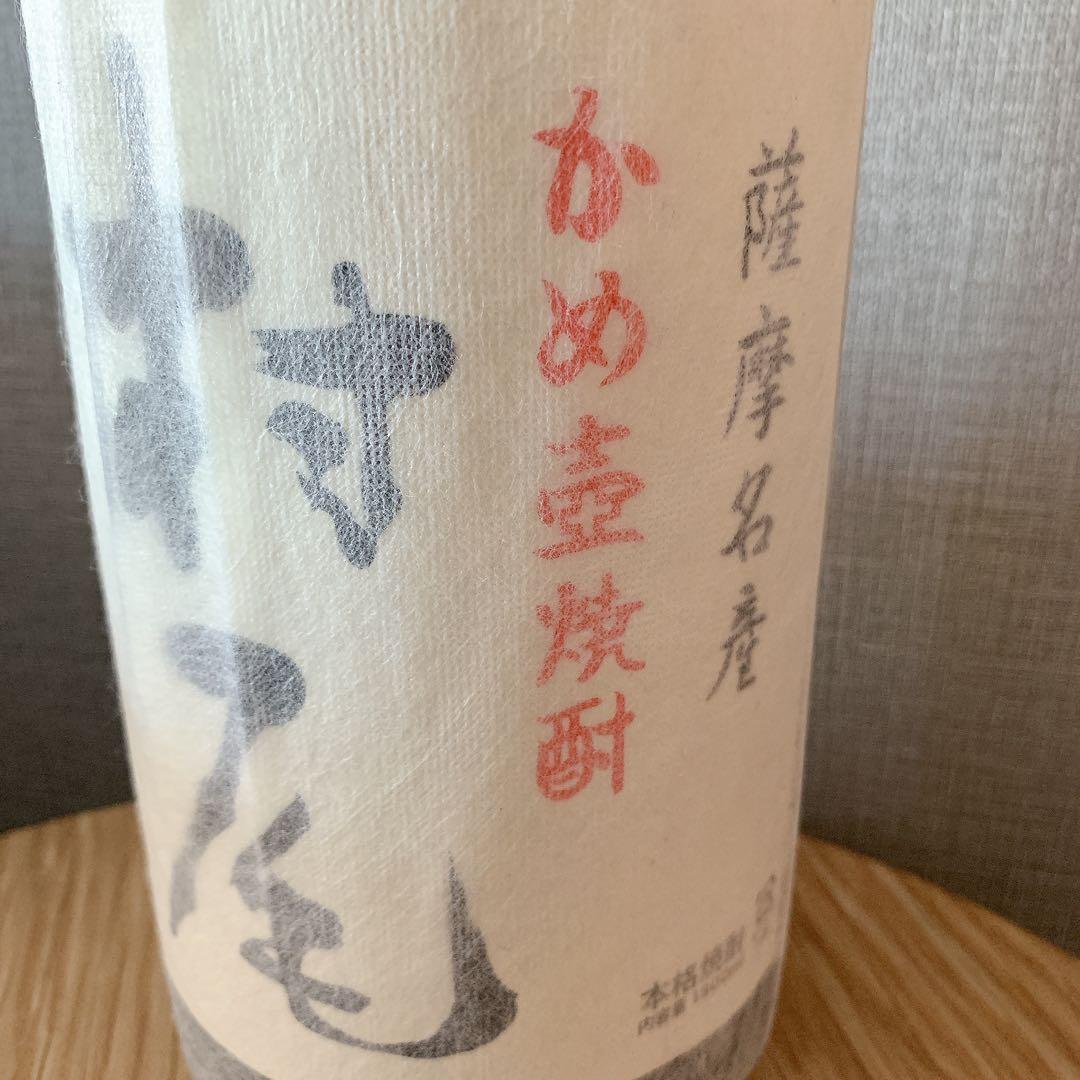 薩摩名産
かめ壺焼酎
村尾
本格焼酎
内容量 1800ml